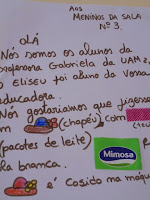 AOS
MENINOS DA SALA
Nº 3.
OLÁ
Nós somos os alunos da
professora Gabriela da UAM2,
o ELISEU foi aluno da vossa
educadora.
Nós gostaríamos que fizesse
m (chapéu) com
(pacotes de leite)
Mimosa
lã branca.
é cosido na máqu